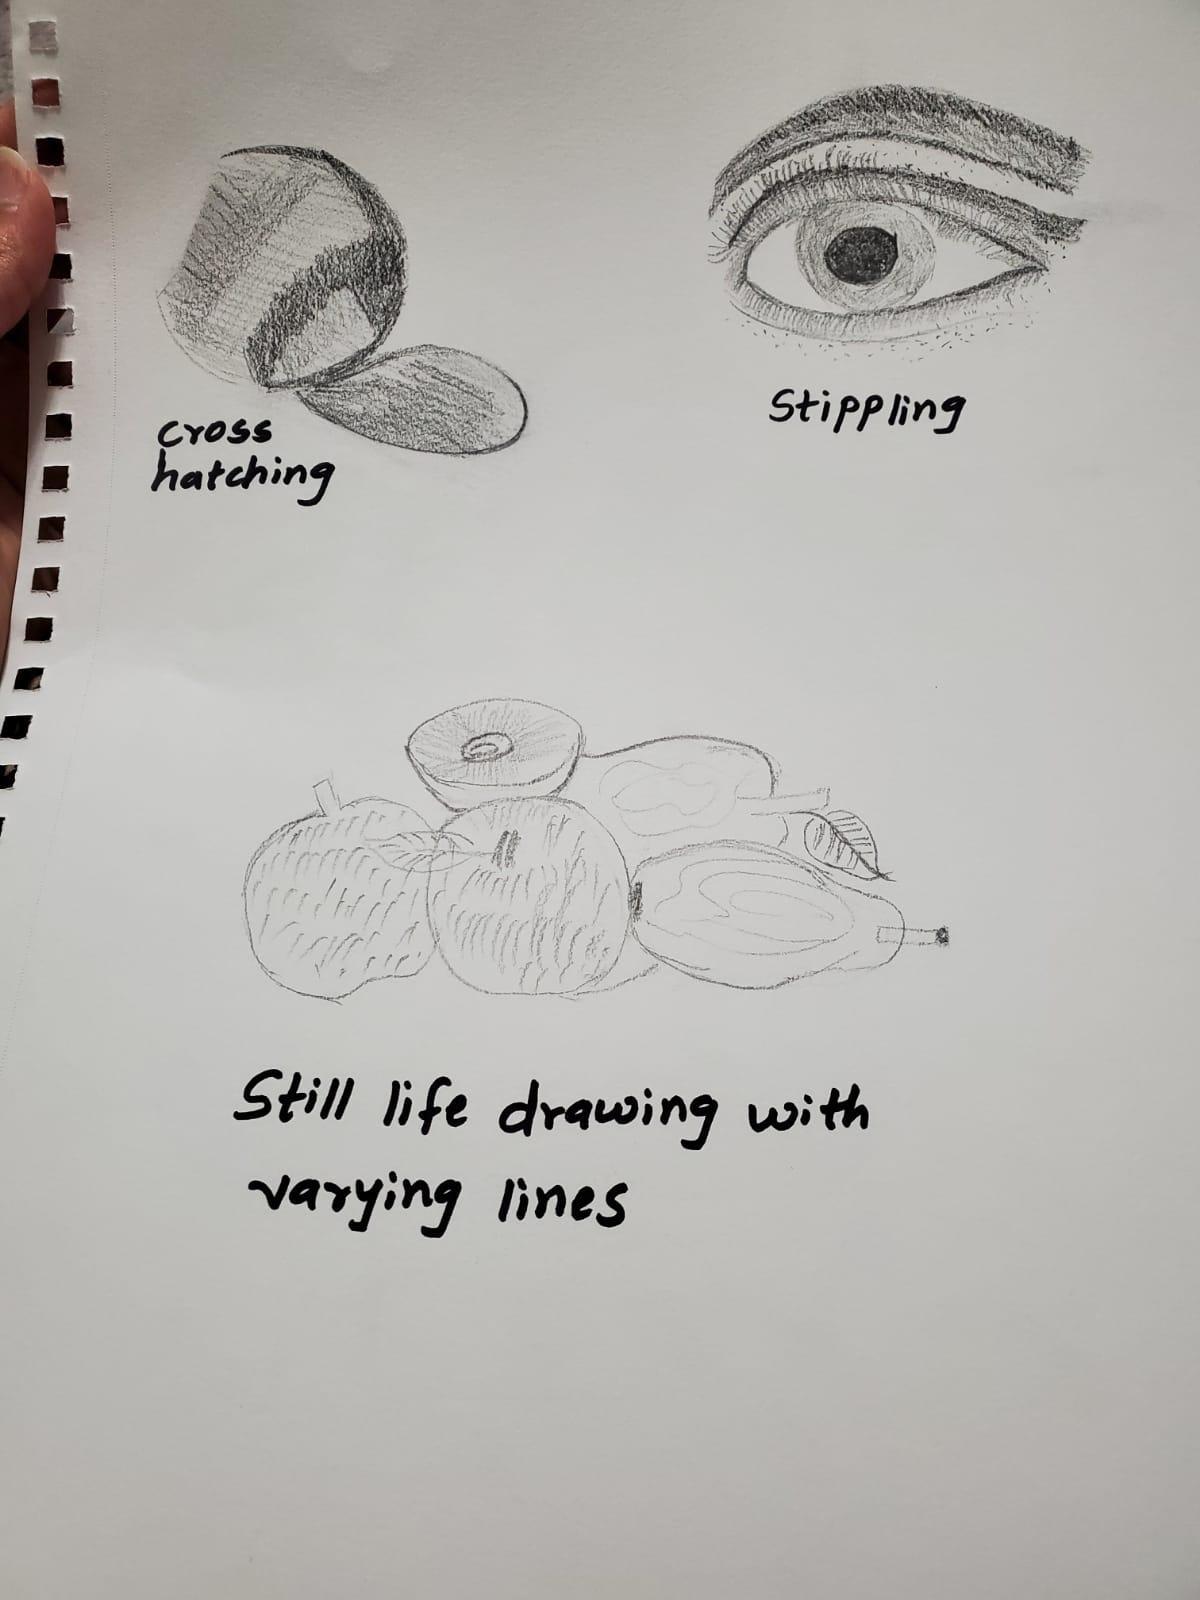 cross
hatching
Stippling
Still life drawing with
varying lines